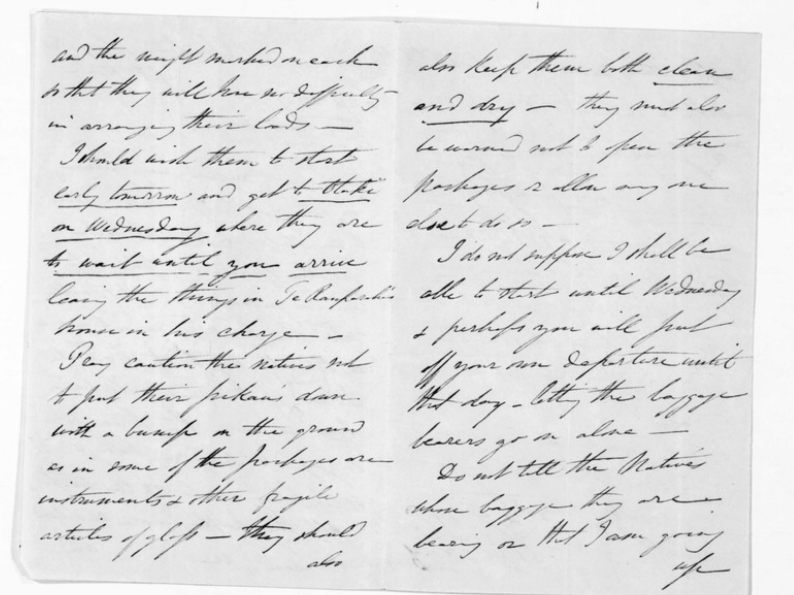 and the weight marked on each
so that they will have no difficulty
in arranging their loads —
I should wish them to start
early tomorrow and get to Otaki
on Wednesday where they are
to wait until you arrive
leaving the things in Te Rauparaha's
house in his charge —
Pray caution the natives not
to put their pikau's down
with a bump on the ground
as in some of the packages are
instruments & other fragile
articles of glass — they should
also
also keep them both clean
and dry — they must also
be warned not to open the
packages or allow any one
else to do so —
I do not suppose I shall be
able to start until Wednesday
& perhaps you will put
off your own departure until
that day — letting the baggage
bearers go on alone —
Do not tell the Natives
whose baggage they are
bearing or that I am going
up